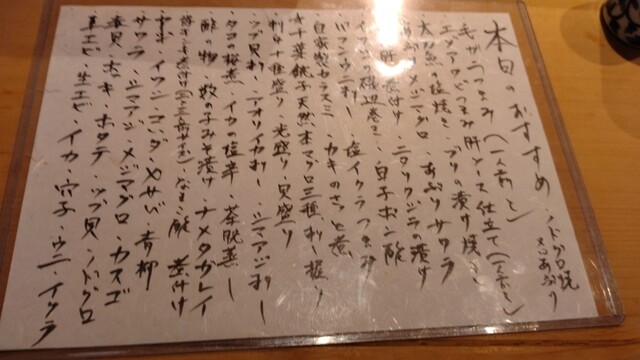 本日のおすすめ
・ノドグロ焼
〆さばあぶり
毛ガニつまみ（一人前〜）
エゾアワビつまみ肝ソース仕立て（一人前〜）
太刀魚の塩焼き・ブリの漬け焼き
メジマグロ・あぶりサワラ
肝煮付け・ニタリクジラの漬け
磯辺巻き・白子ポン酢
バフンウニ刺し・塩イクラつまみ
自家製カラスミ・カキのさっと煮
☆千葉銚子天然本マグロ三種、刺、握り
刺身十種盛り・光盛り・貝盛り
ツブ貝刺し・アオリイカ刺し・シマアジ刺し
タコの桜煮・イカの塩辛・茶碗蒸し
酢の物・数の子みそ漬け・ナメタガレイ煮付け
なまこ酢
イワシ・コハダ・小サバ・青柳
サワラ・シマアジ・メジマグロ・カスゴ
赤貝・ホッキ・ホタテ・ツブ貝・ノドグロ
生エビ・イカ・穴子・ウニ・イクラ